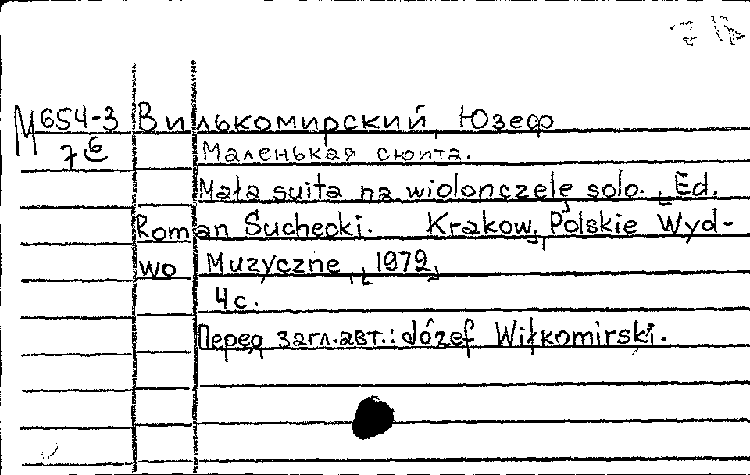 М 654-3 Вилькомирский, Юзеф
76 Маленькая сюита.
Mała suita na wiolonczelę solo. Ed.
Roman Suchecki. Krakow, Polskie Wyd-
wo Muzyczne, 1979,
4 с.
Перед загл. авт.: Józef Wiłkomirski.